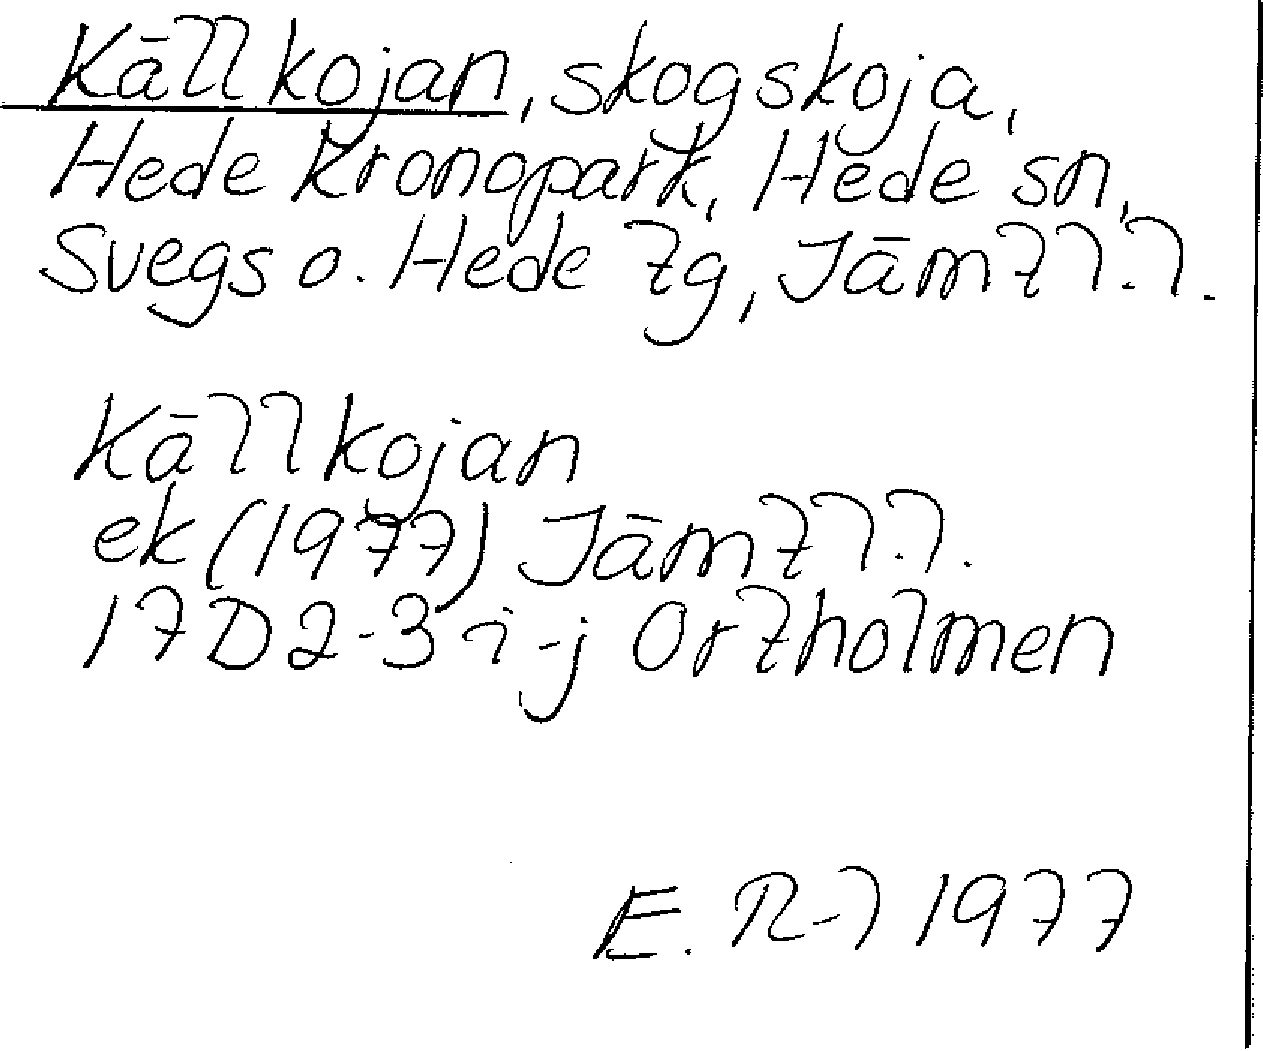 Källkojan, skogskoja,
Hede Kronopark, Hede sn,
Svegs o. Hede tg, Jämtl.l.
Källkojan
ek (1977) Jämtl.l.
17D2-3 i-j Ortholmen
E. R-l 1977